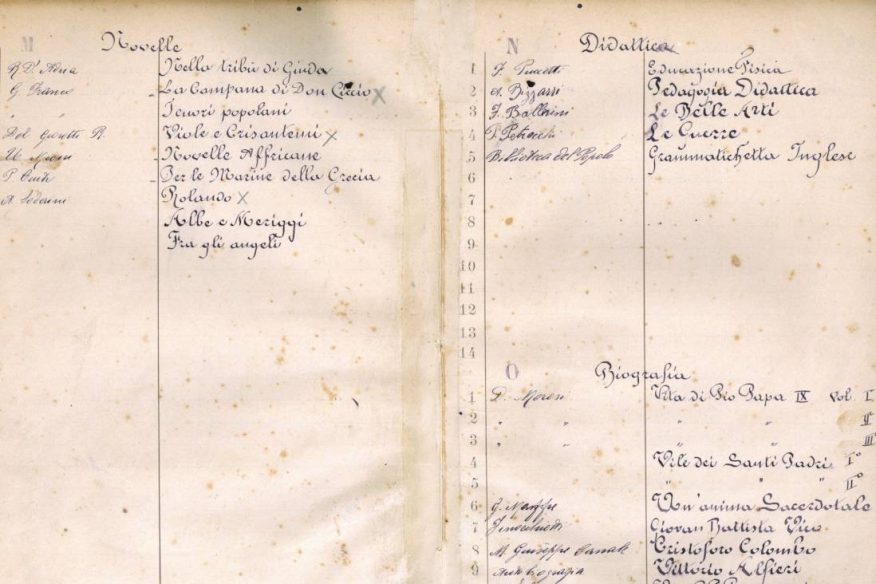 M Novelle
R. D'Adria Nella tribù di Giuda
G. Franco La Campana di Don Ciccio X
" " Tenori popolani
Del R. Viole e Crisantemi X
Novelle Affricane
P. Per le Marine della Grecia
A. Rolando X
Albe e Meriggi
Fra gli angeli
N Didattica
1 F. Educazione Fisica
2 A. Bizzarri Pedagogia Didattica
3 F. Ballerini Le Belle Arti
4 P. Petrocchi Le Guerre
5 Biblioteca del Popolo Grammatichetta Inglese
6
7
8
9
10
11
12
13
14
O Biografia
1 Vita di Pio Papa IX Vol. I
2 " " " " II
3 " " " " III
4 Vite dei Santi Padri I°
5 " " " II°
6 G. Un'anima Sacerdotale
7 Giovan Battista Vico
8 M. Giuseppe Canale Cristoforo Colombo
9 Autobiografia Vittorio Alfieri